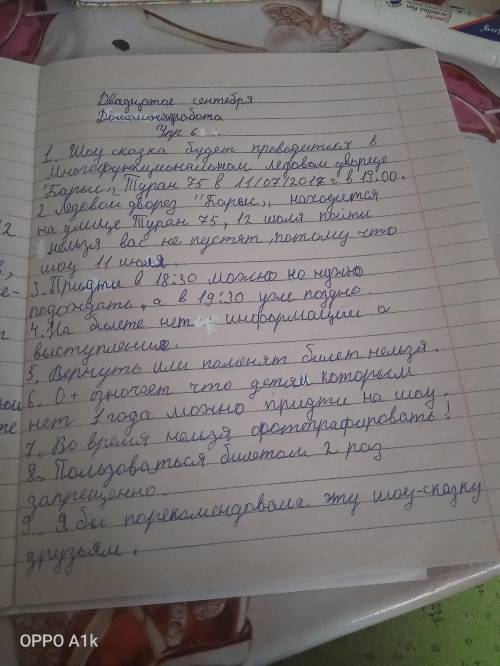 Двадцатое сентебря
Домашняя работа
Упр 6
1. Шоу сказка будет проводится в
Многофункциональном ледовом дворце
"Барыс,, Туран 75 в 11/07/2017г в 19:00.
2 Ледевой дворез "Барыс,, находится
на улице Туран 75, 12 июля пойти
нельзя вас не пустят, потому что
шоу 11 июля.
3. Придти в 18:30 можно но нужно
подождать, а в 19:30 уже поздно.
4. На билете нет информации о
выступлении.
5. Вернуть или поменят билет нельзя.
6. 0+ означает что детям которым
нет 1 года можно придти на шоу.
7. Во время нельзя фотографировать!
8. Пользоваться билетом 2 раз
запрещенно.
9. Я бы порекомендовала эту шоу-сказку
друзьям.
OPPO A1k